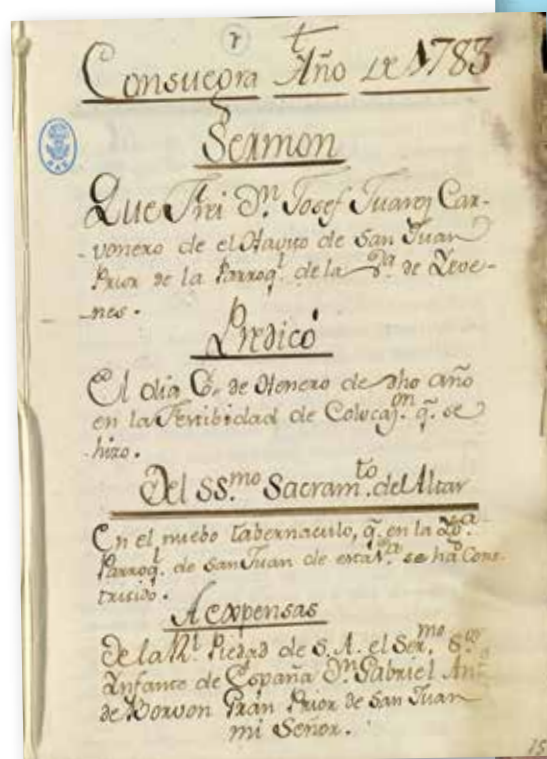 7
Consuegra Año de 1783
Sermon
Que Frei Dn. Josef Juarez Car-
-vonero de el Havito de San Juan
Prior de la Parroql. de la Va. de Yeve-
-nes.
Predicó
El dia 6. de Henero de dho año
en la Festibidad de Colocajon. q. se
hizo.
Del SS.mo Sacramto. del Altar
En el nuebo tabernaculo, q. en la Ygla.
Parroql. de San Juan de esta Va. se há Cons-
truido.
A expensas
De la Rl. Piedad de S. A. el Sermo. Sor.
Infante de España Dn. Gabriel Anto.
de Borvon Gran Prior de San Juan
mi Señor.